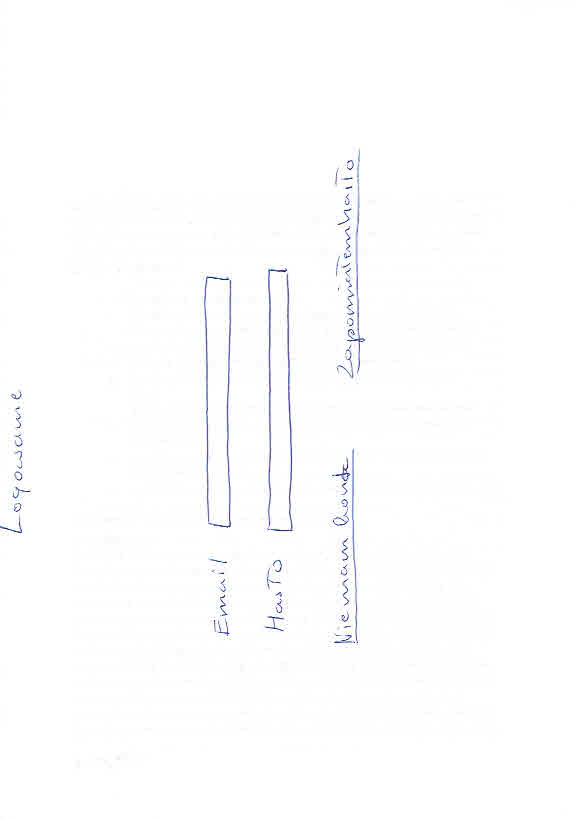 Logowanie
Email
Hasło
Nie mam konta
Zapomniałem hasło